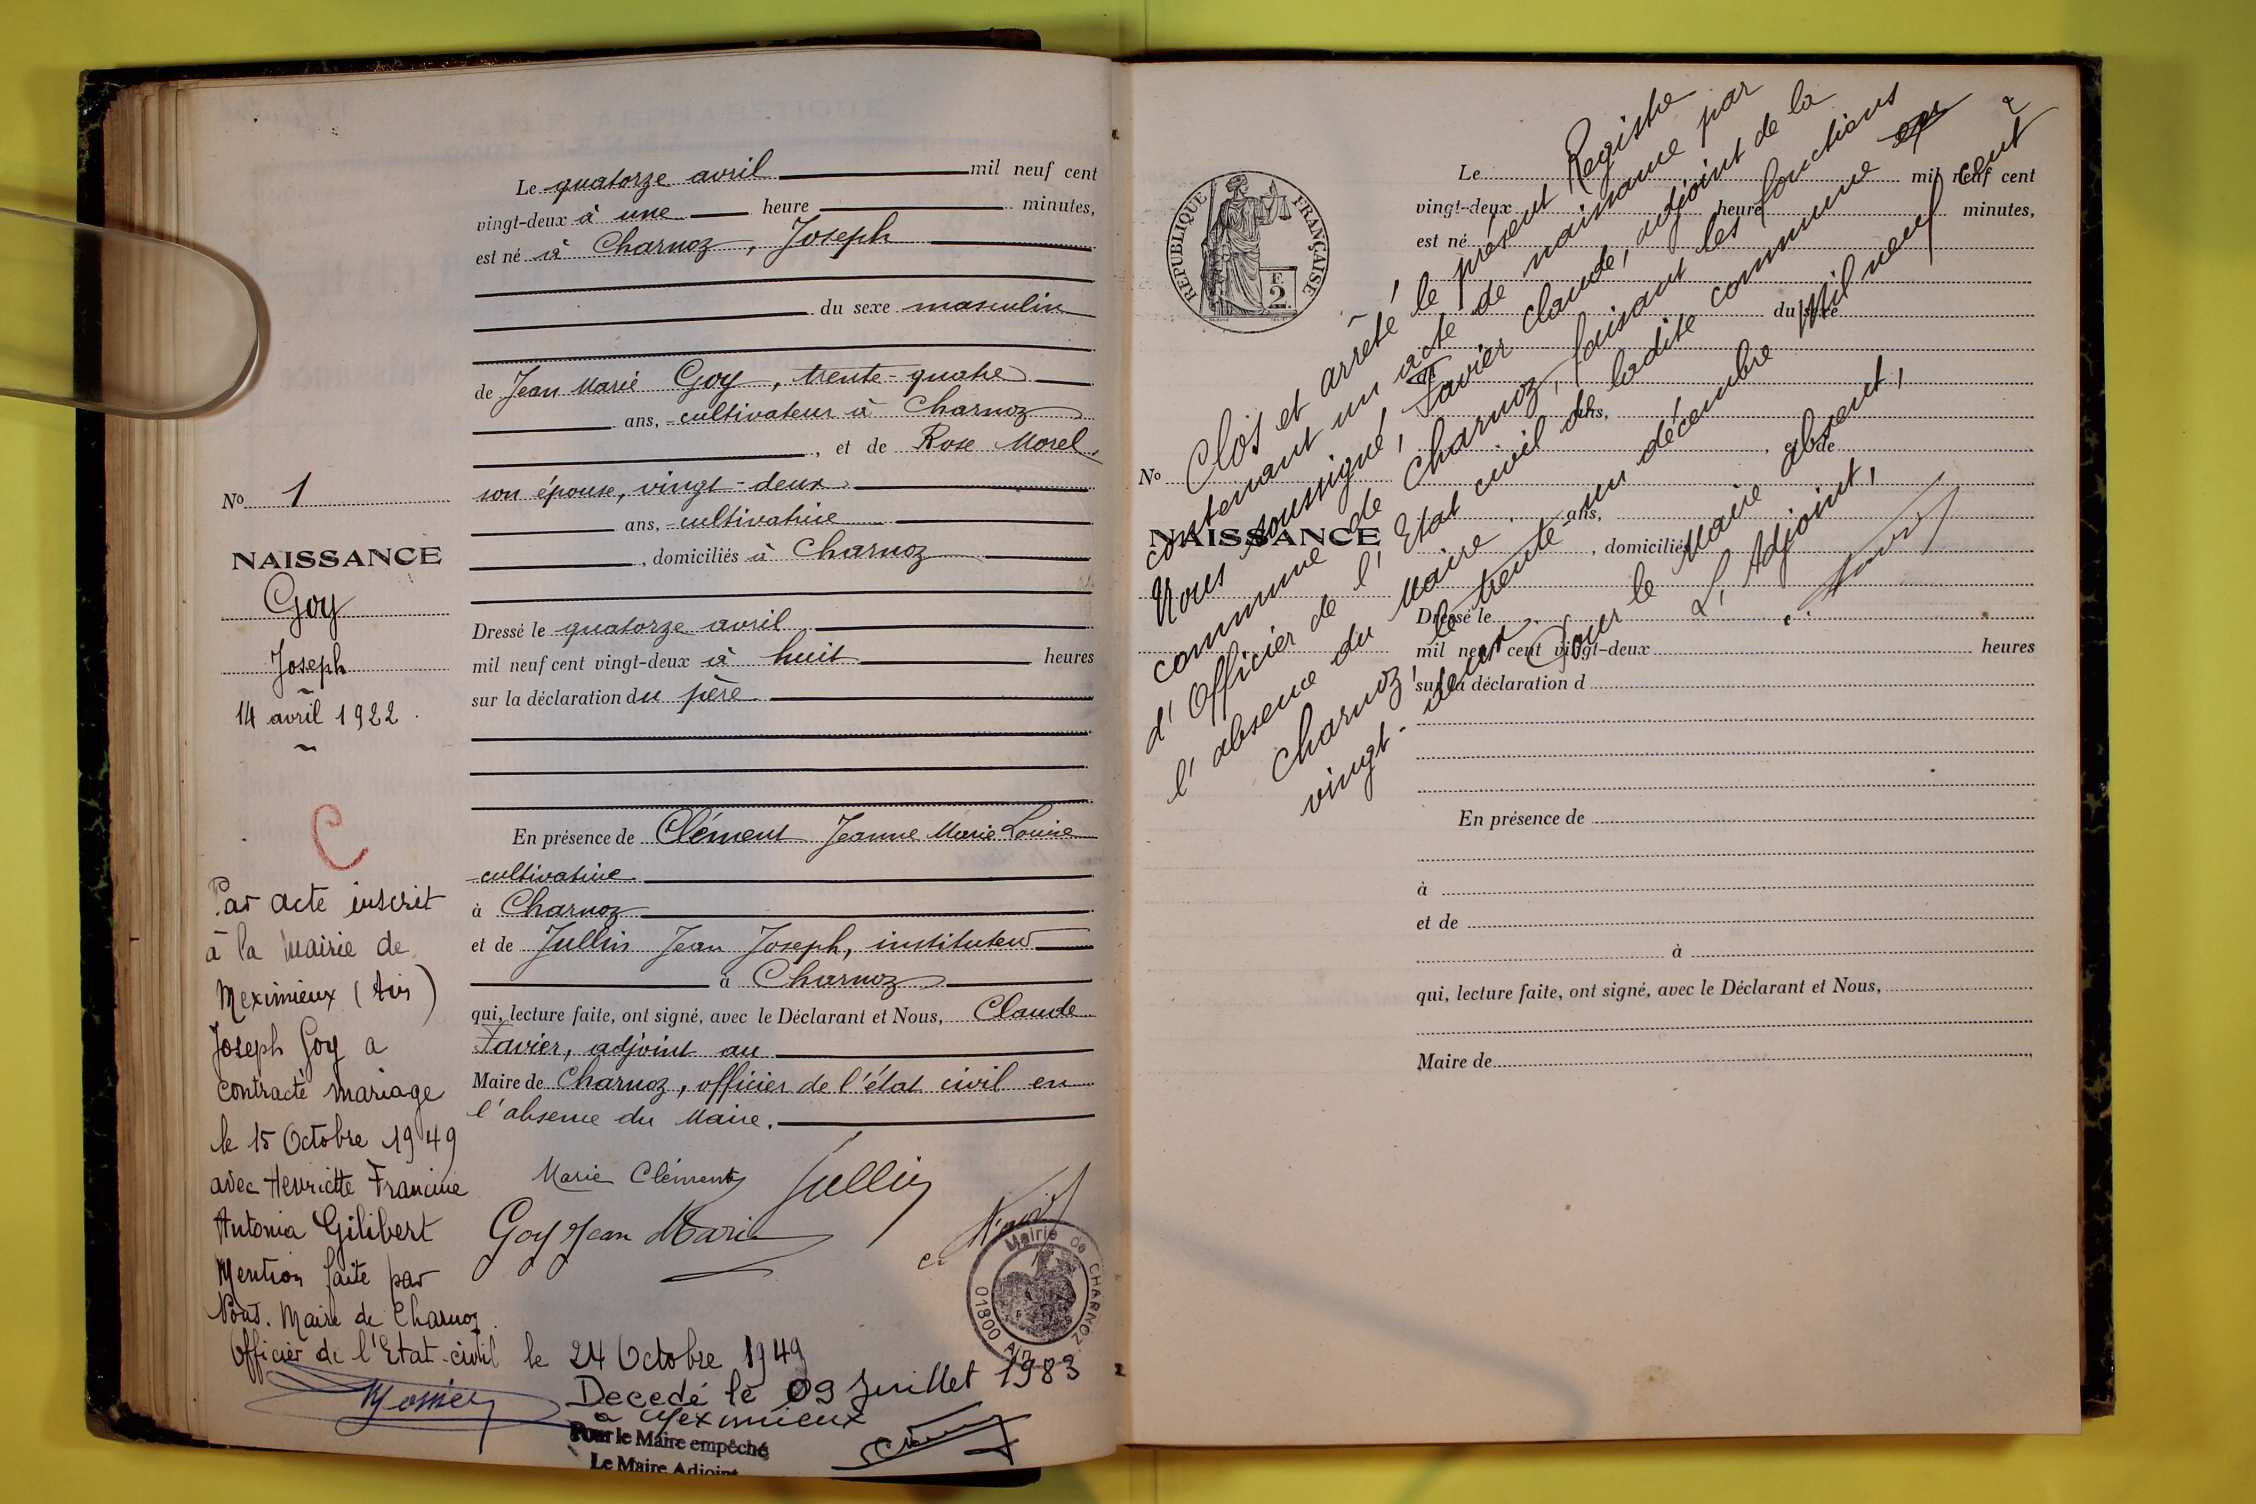 Le quatorze avril mil neuf cent
vingt-deux à une heure minutes,
est né à Charnoz, Joseph
du sexe masculin
de Jean Marie Goy, trente-quatre
ans, cultivateur à Charnoz
, et de Rose Morel,
son épouse, vingt-deux
ans, cultivatrice
, domiciliés à Charnoz
Dressé le quatorze avril
mil neuf cent vingt-deux à huit heures
sur la déclaration du père
En présence de Clément Jeanne Marie Louise
cultivatrice
à Charnoz
et de Jullin Jean Joseph, instituteur
à Charnoz
qui, lecture faite, ont signé, avec le Déclarant et Nous, Claude
Favier, adjoint au
Maire de Charnoz, officier de l'état civil en
l'absence du Maire.
Marie Clément Jullin
Goy Jean Marie
Mairie de CHARNOZ
01800 Ain
No 1
NAISSANCE
Goy
Joseph
14 avril 1922.
C
Par acte inscrit
à la Mairie de
Meximieux (Ain)
Joseph Goy a
contracté mariage
le 15 Octobre 1949
avec Henriette Francine
Antonia Gilibert
Mention faite par
Nous. Maire de Charnoz.
Officier de l'Etat-civil le 24 Octobre 1949
Decedé le 09 Juillet 1983
a Meximieux
Pour le Maire empêché
Le Maire Adjoint
REPUBLIQUE FRANÇAISE
F
2
Le mil neuf cent
vingt-deux heure minutes,
est né
du sexe
de
ans,
, et de
No
NAISSANCE
ans,
, domiciliés
Dressé le
mil neuf cent vingt-deux heures
sur la déclaration d
En présence de
à
et de
à
qui, lecture faite, ont signé, avec le Déclarant et Nous,
Maire de
Clos et arrêté le présent Registre
contenant un acte de naissance par
Nous soussigné, Favier Claude, adjoint de la
commune de Charnoz, faisant les fonctions
d'Officier de l'Etat civil de ladite commune en
l'absence du Maire.
Charnoz, le trente-un décembre Mil neuf cent
vingt-deux
Pour le Maire absent,
L'Adjoint,